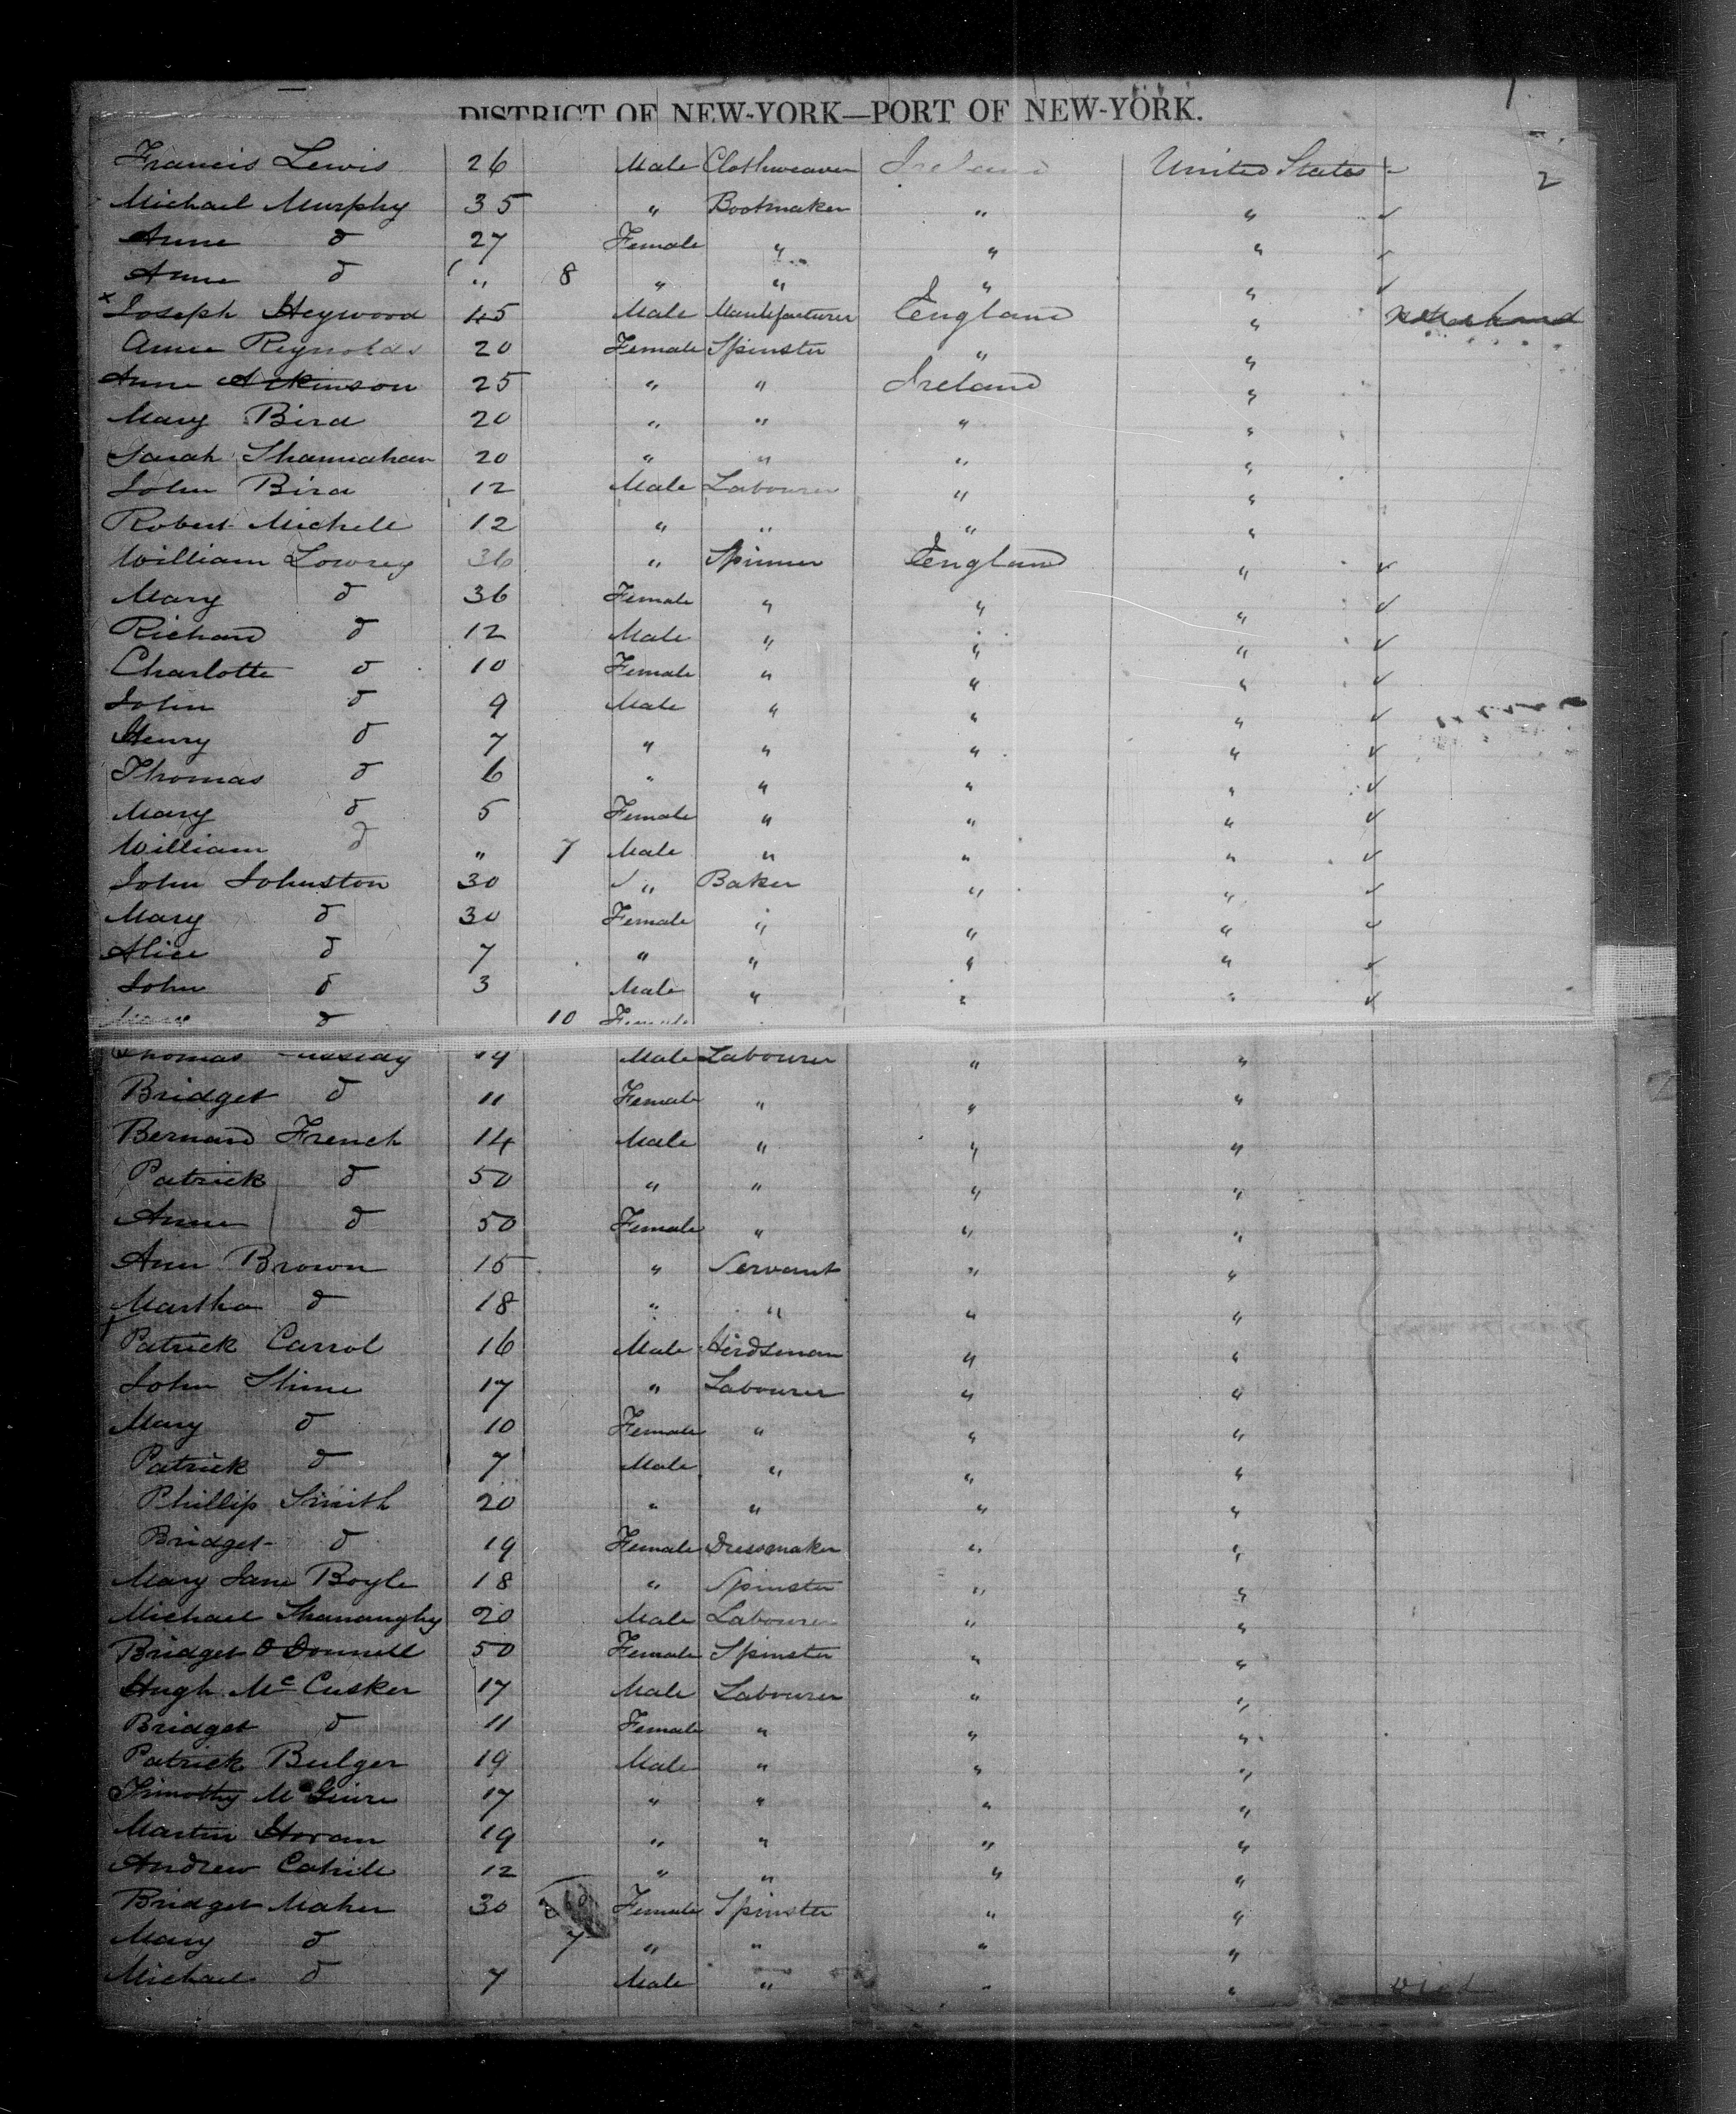 1
DISTRICT OF NEW-YORK—PORT OF NEW-YORK.
2
Francis Lewis 26 Male Clothweaver Ireland United States
Michael Murphy 35 " Bootmaker " " ✓
Anne d 27 Female " " " ✓
Anne d " 8 " " " " ✓
x Joseph Heywood 45 Male Manufacturer England "
Anne Reynolds 20 Female Spinster " "
Anne Atkinson 25 " " Ireland "
Mary Bird 20 " " " "
Sarah Shannahan 20 " " " "
John Bird 12 Male Labourer " "
Robert Michell 12 " " " "
William Lowrey 36 " Spinner England " ✓
Mary d 36 Female " " " ✓
Richard d 12 Male " " " ✓
Charlotte d 10 Female " " " ✓
John d 9 Male " " " ✓
Henry d 7 " " " " ✓
Thomas d 6 " " " " ✓
Mary d 5 Female " " " ✓
William d " 7 Male " " " ✓
John Johnston 30 " Baker " " ✓
Mary d 30 Female " " " ✓
Alice d 7 " " " " ✓
John d 3 Male " " " ✓
d 10 Female
Thomas 19 Male Labourer " "
Bridget d 11 Female " " "
Bernard French 14 Male " " "
Patrick d 50 " " " "
Anne d 50 Female " " "
Ann Brown 15 " Servant " "
Martha d 18 " " " "
Patrick Carrol 16 Male Herdsman " "
John Stine 17 " Labourer " "
Mary d 10 Female " " "
Patrick d 7 Male " " "
Phillip Smith 20 " " " "
Bridget d 19 Female Dressmaker " "
Mary Jane Boyle 18 " Spinster " "
Michael Shanaughy 20 Male Labourer " "
Bridget O Donnell 50 Female Spinster " "
Hugh Mc Cusker 17 Male Labourer " "
Bridget d 11 Female " " "
Patrick Bulger 19 Male " " "
Timothy McGuire 17 " " " "
Martin Horan 19 " " " "
Andrew Cahill 12 " " " "
Bridget Maher 30 Female Spinster " "
Mary d 7 " " " "
Michael d 7 Male " " " Died